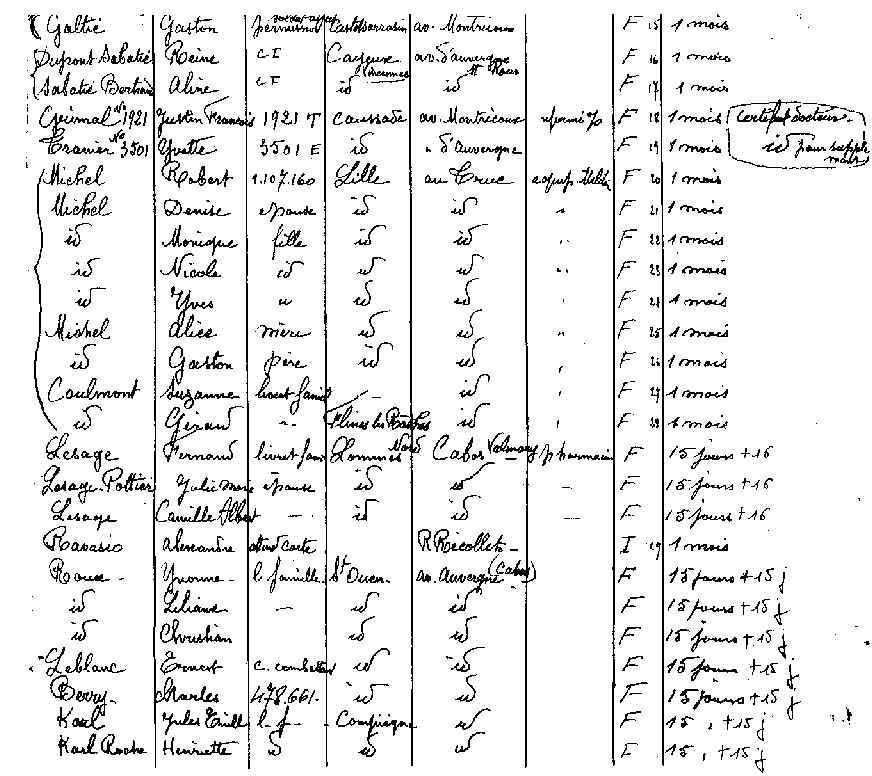 Galtié Gaston Castelsarrasin av. Montricoux F 15 1 mois
Dupont Sabatié Reine CI Cayeux av. d'auvergne F 16 1 mois
Sabatié Bertrand Aline CF id id F 17 1 mois
N° 1921 Justin François 1921 T Caussade av. Montricoux F 18 1 mois certificat docteur
N° 3501 Yvette 3501 E id " d'Auvergne F 19 1 mois id pour
Michel Robert 1.107.160 Lille au F 20 1 mois
Michel Denise épouse id id " F 21 1 mois
id Monique fille id id " F 22 1 mois
id Nicole id id id " F 23 1 mois
id Yves " id id " F 24 1 mois
Michel Alice mère id id " F 25 1 mois
id Gaston père id id " F 26 1 mois
Caulmont Suzanne livret famil — id " F 27 1 mois
id Gérard " Flines les Raches id " F 28 1 mois
Lesage Fernand livret fam Lomme Nord Cabos pharmacien F 15 jours + 16
Lesage Pottier Julie Marie épouse id id — F 15 jours + 16
Lesage Camille Albert — id id — F 15 jours + 16
Ravasio Alexandre carte R Récollets — I 29 1 mois
Roux - Yvonne - l. famille St Ouen - av. Auvergne (Cabos) F 15 jours + 15 j
id Liliane — id id F 15 jours + 15 j
id Christian id id F 15 jours + 15 j
Leblanc Ernest c. combattant id id F 15 jours + 15 j
Berry - Charles 478.661 - id id F 15 jours + 15 j
Karl Jules Emile l. f - Compiègne id F 15 " + 15 j
Karl Roche Henriette id id id F 15 " + 15 j